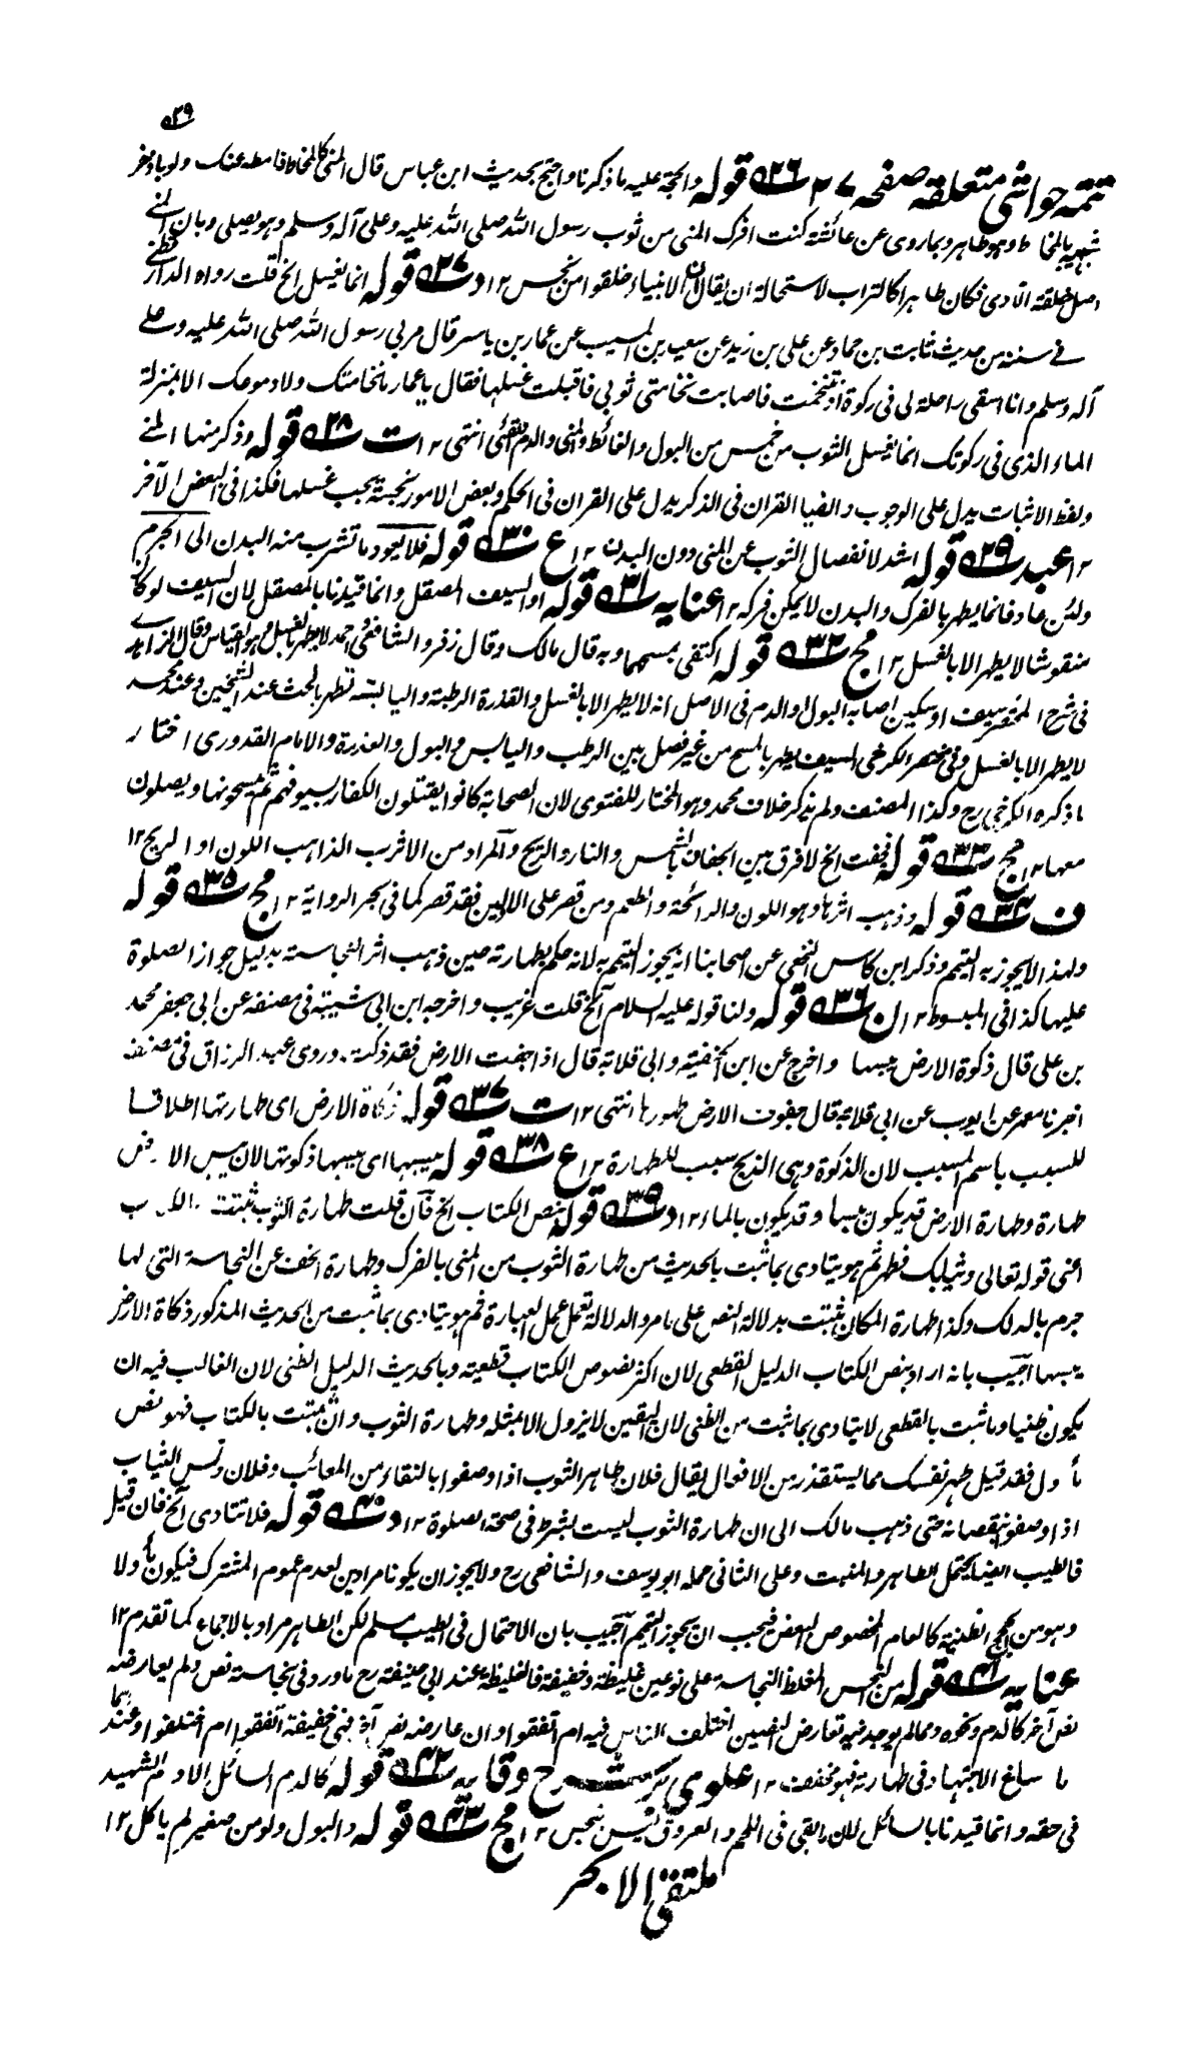 ۳۹
تتمه حواشی متعلقه صفحه ۲۷ ۲۶ قوله والحجة عليه ما ذكرنا واحتج بحديث ابن عباس قال المنی كالمخاط فامطه عنك ولو باذخر
شبهه بالمخاط وهو طاهر وبما روی عن عائشة كنت افرك المنی من ثوب رسول الله صلی الله عليه وعلی آله وسلم وهو يصلی وبان المنی
اصل خلقة الآدمی فكان طاهرا كالتراب لاستحالة ان يقال ان الانبياء خلقوا من نجس ۱۲ د ۲۷ قوله انما يغسل الخ قلت رواه الدارقطنی
فی سننه من حديث ثابت بن حماد عن علی بن زيد عن سعيد بن المسيب عن عمار بن ياسر قال مر بی رسول الله صلی الله عليه وعلی
آله وسلم وانا اسقی راحلة لی فی ركوة اذ تنخمت فاصابت نخامتی ثوبی فاقبلت غسلها فقال يا عمار ما نخامتك ولا دموعك الا بمنزلة
الماء الذی فی ركوتك انما يغسل الثوب من خمس من البول والغائط والمنی والدم والقئ انتهی ۱۲ ت ۲۸ قوله وذكر منها المنی
ولفظ الاثبات يدل علی الوجوب وايضا القران فی الذكر يدل علی القران فی الحكم وبعض الامور نجسة يجب غسلها فكذا فی البعض الآخر
۱۲ عبد ۲۹ قوله اشد لانفصال الثوب عن المنی دون البدن ۱۲ ع ۳۰ قوله فلا يعود ما تشرب منه البدن الی الجرم
ولئن عاد فانما يطهر بالفرك والبدن لا يمكن فركه ۱۲ عنايه ۳۱ قوله او السيف المصقل وانما قيدنا بالمصقل لان السيف لو كان
منقوشا لا يطهر الا بالغسل ۱۲ مج ۳۲ قوله اكتفی بمسحهما وبه قال مالك وقال زفر والشافعی واحمد لا يطهر الا بالغسل وهو القياس وقال الزاهدی
فی شرح المختصر سيف او سكين اصابه البول او الدم فی الاصل انه لا يطهر الا بالغسل والقذرة الرطبة واليابسة تطهر بالحث عند الشيخين وعند محمد
لا يطهر الا بالغسل وفی مختصر الكرخی السيف يطهر بالمسح من غير فصل بين الرطب واليابس والبول والعذرة والامام القدوری اختار
ما ذكره الكرخی رح وكذا المصنف ولم يذكر خلاف محمد وهو المختار للفتوی لان الصحابة كانوا يقتلون الكفار بسيوفهم ثم يمسحونها ويصلون
معها ۱۲ مج ۳۳ قوله فجفت الخ لا فرق بين الجفاف بالشمس والنار والريح والمراد من الاثر الذاهب اللون او الريح ۱۲
ف ۳۴ قوله وذهب اثرها وهو اللون والرائحة والطعم ومن قصر علی الاولين فقد قصر كما فی بحر الرواية ۱۲ مج ۳۵ قوله
ولهذا لا يجوز به التيمم وذكر ابن كاس النخعی عن اصحابنا انه يجوز التيمم به لانه حكم بطهارته حين ذهب اثر النجاسة بدليل جواز الصلوة
عليها كذا فی المبسوط ۱۲ ن ۳۶ قوله ولنا قوله عليه السلام الخ قلت غريب واخرجه ابن ابی شيبة فی مصنفه عن ابی جعفر محمد
بن علی قال ذكوة الارض يبسها واخرج عن ابن الحنفية وابی قلابة قال اذا جفت الارض فقد ذكت وروی عبد الرزاق فی مصنفه
اخبرنا معمر عن ايوب عن ابی قلابة قال جفوف الارض طهورها انتهی ۱۲ ت ۳۷ قوله زكاة الارض ای طهارتها اطلاقا
للسبب باسم المسبب لان الذكوة وهی الذبح سبب للطهارة ۱۲ ع ۳۸ قوله يبسها ای يبسها ذكوتها لان يبس الارض
طهارة وطهارة الارض قد يكون يبسا وقد يكون بالماء ۱۲ د ۳۹ قوله بنص الكتاب الخ فان قلت طهارة الثوب ثبتت بالكتاب
اعنی قوله تعالی وثيابك فطهر ثم هو يتادی بما ثبت بالحديث من طهارة الثوب من المنی بالفرك وطهارة الخف عن النجاسة التی لها
جرم بالدلك وكذا طهارة المكان ثبتت بدلالة النص علی ما مر والدلالة تعمل عمل العبارة ثم هو يتادی بما ثبت من الحديث المذكور ذكاة الارض
يبسها اجيب بانه اراد بنص الكتاب الدليل القطعی لان اكثر نصوص الكتاب قطعية وبالحديث الدليل الظنی لان الغالب فيه ان
يكون ظنيا وما ثبت بالقطعی لا يتادی بما ثبت من الظنی لان اليقين لا يزول الا بمثله وطهارة الثوب وان ثبتت بالكتاب فهو نص
مأول فقد قيل طهر نفسك مما يستقذر من الافعال يقال فلان طاهر الثوب اذا وصفوا بالنقاء من المعائب وفلان دنس الثياب
اذا وصفوه بنقصانه حتی ذهب مالك الی ان طهارة الثوب ليست بشرط فی صحة الصلوة ۱۲ د ۴۰ قوله فلا تتادی الخ فان قيل
فالطيب ايضا يحتمل الطاهر والمنبت وعلی الثانی حمله ابو يوسف والشافعی رح ولا يجوز ان يكونا مرادين لعدم عموم المشترك فيكون مأولا
وهو من الحجج الظنية كالعام المخصوص البعض فيجب ان يجوز التيمم اجيب بان الاحتمال فی الطيب مسلم لكن الطاهر مراد بالاجماع كما تقدم ۱۲
عنايه ۴۱ قوله من النجس المغلظ النجاسة علی نوعين غليظة وخفيفة فالغليظة عند ابی حنيفة رح ما ورد فی نجاسته نص ولم يعارضه
نص آخر كالدم ونحوه ومالم يوجد فيه تعارض النصين اختلف الناس فيه ام اتفقوا وان عارضه نص آخر فهی خفيفة اتفقوا ام اختلفوا وعندهما
ما ساغ الاجتهاد فی طهارته فهو مخفف ۱۲ علومی شرح وقايه ۴۲ قوله كالدم السائل الا دم الشهيد
فی حقه وانما قيدنا بالسائل لان ما بقی فی اللحم والعروق ليس بنجس ۱۲ مج ۴۳ قوله والبول ولو من صغير لم ياكل ۱۲
ملتقی الابحر